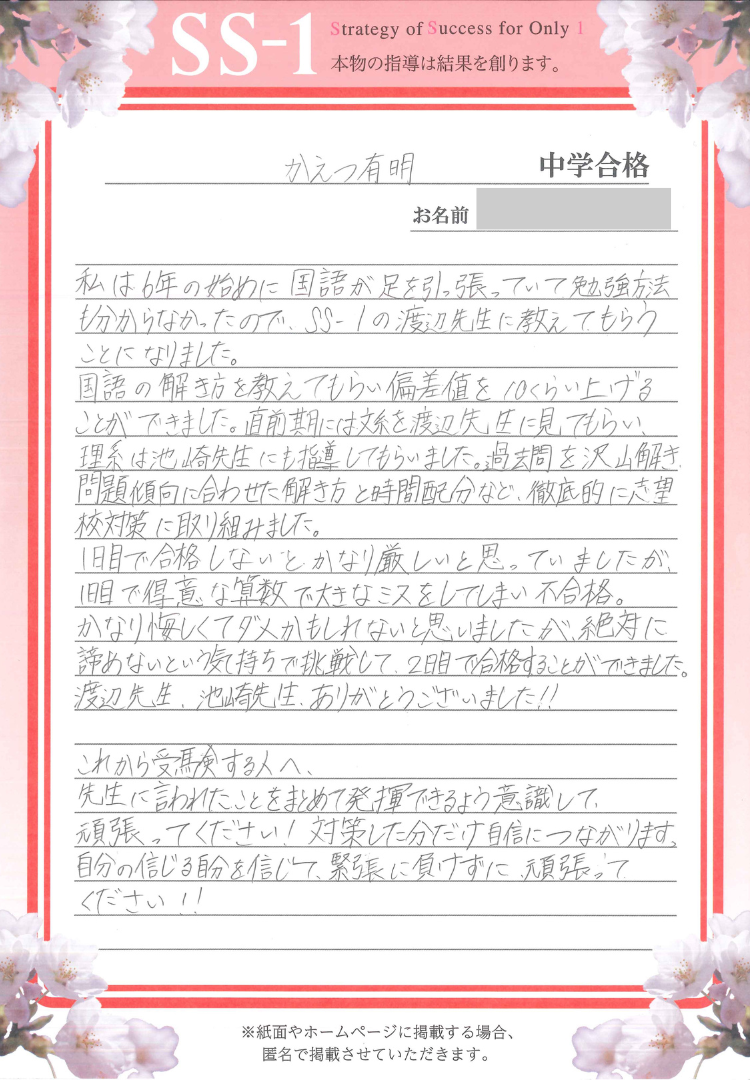 SS-1
Strategy of Success for Only 1
本物の指導は結果を創ります。
かえつ有明 中学合格
お名前
私は6年の始めに国語が足を引っ張っていて勉強方法
も分からなかったので、SS-1の渡辺先生に教えてもらう
ことになりました。
国語の解き方を教えてもらい偏差値を10くらい上げる
ことができました。直前期には文系を渡辺先生に見てもらい、
理系は池崎先生にも指導してもらいました。過去問を沢山解き、
問題傾向に合わせた解き方と時間配分など、徹底的に志望
校対策に取り組みました。
1日目で合格しないとかなり厳しいと思っていましたが、
1日目で得意な算数で大きなミスをしてしまい不合格。
かなり悔しくてダメかもしれないと思いましたが、絶対に
諦めないという気持ちで挑戦して、2日目で合格することができました。
渡辺先生、池崎先生、ありがとうございました!!
これから受験する人へ、
先生に言われたことをまとめて発揮できるよう意識して、
頑張ってください!対策した分だけ自信につながります。
自分の信じる自分を信じて、緊張に負けずに、頑張って
ください!!
※紙面やホームページに掲載する場合、
匿名で掲載させていただきます。